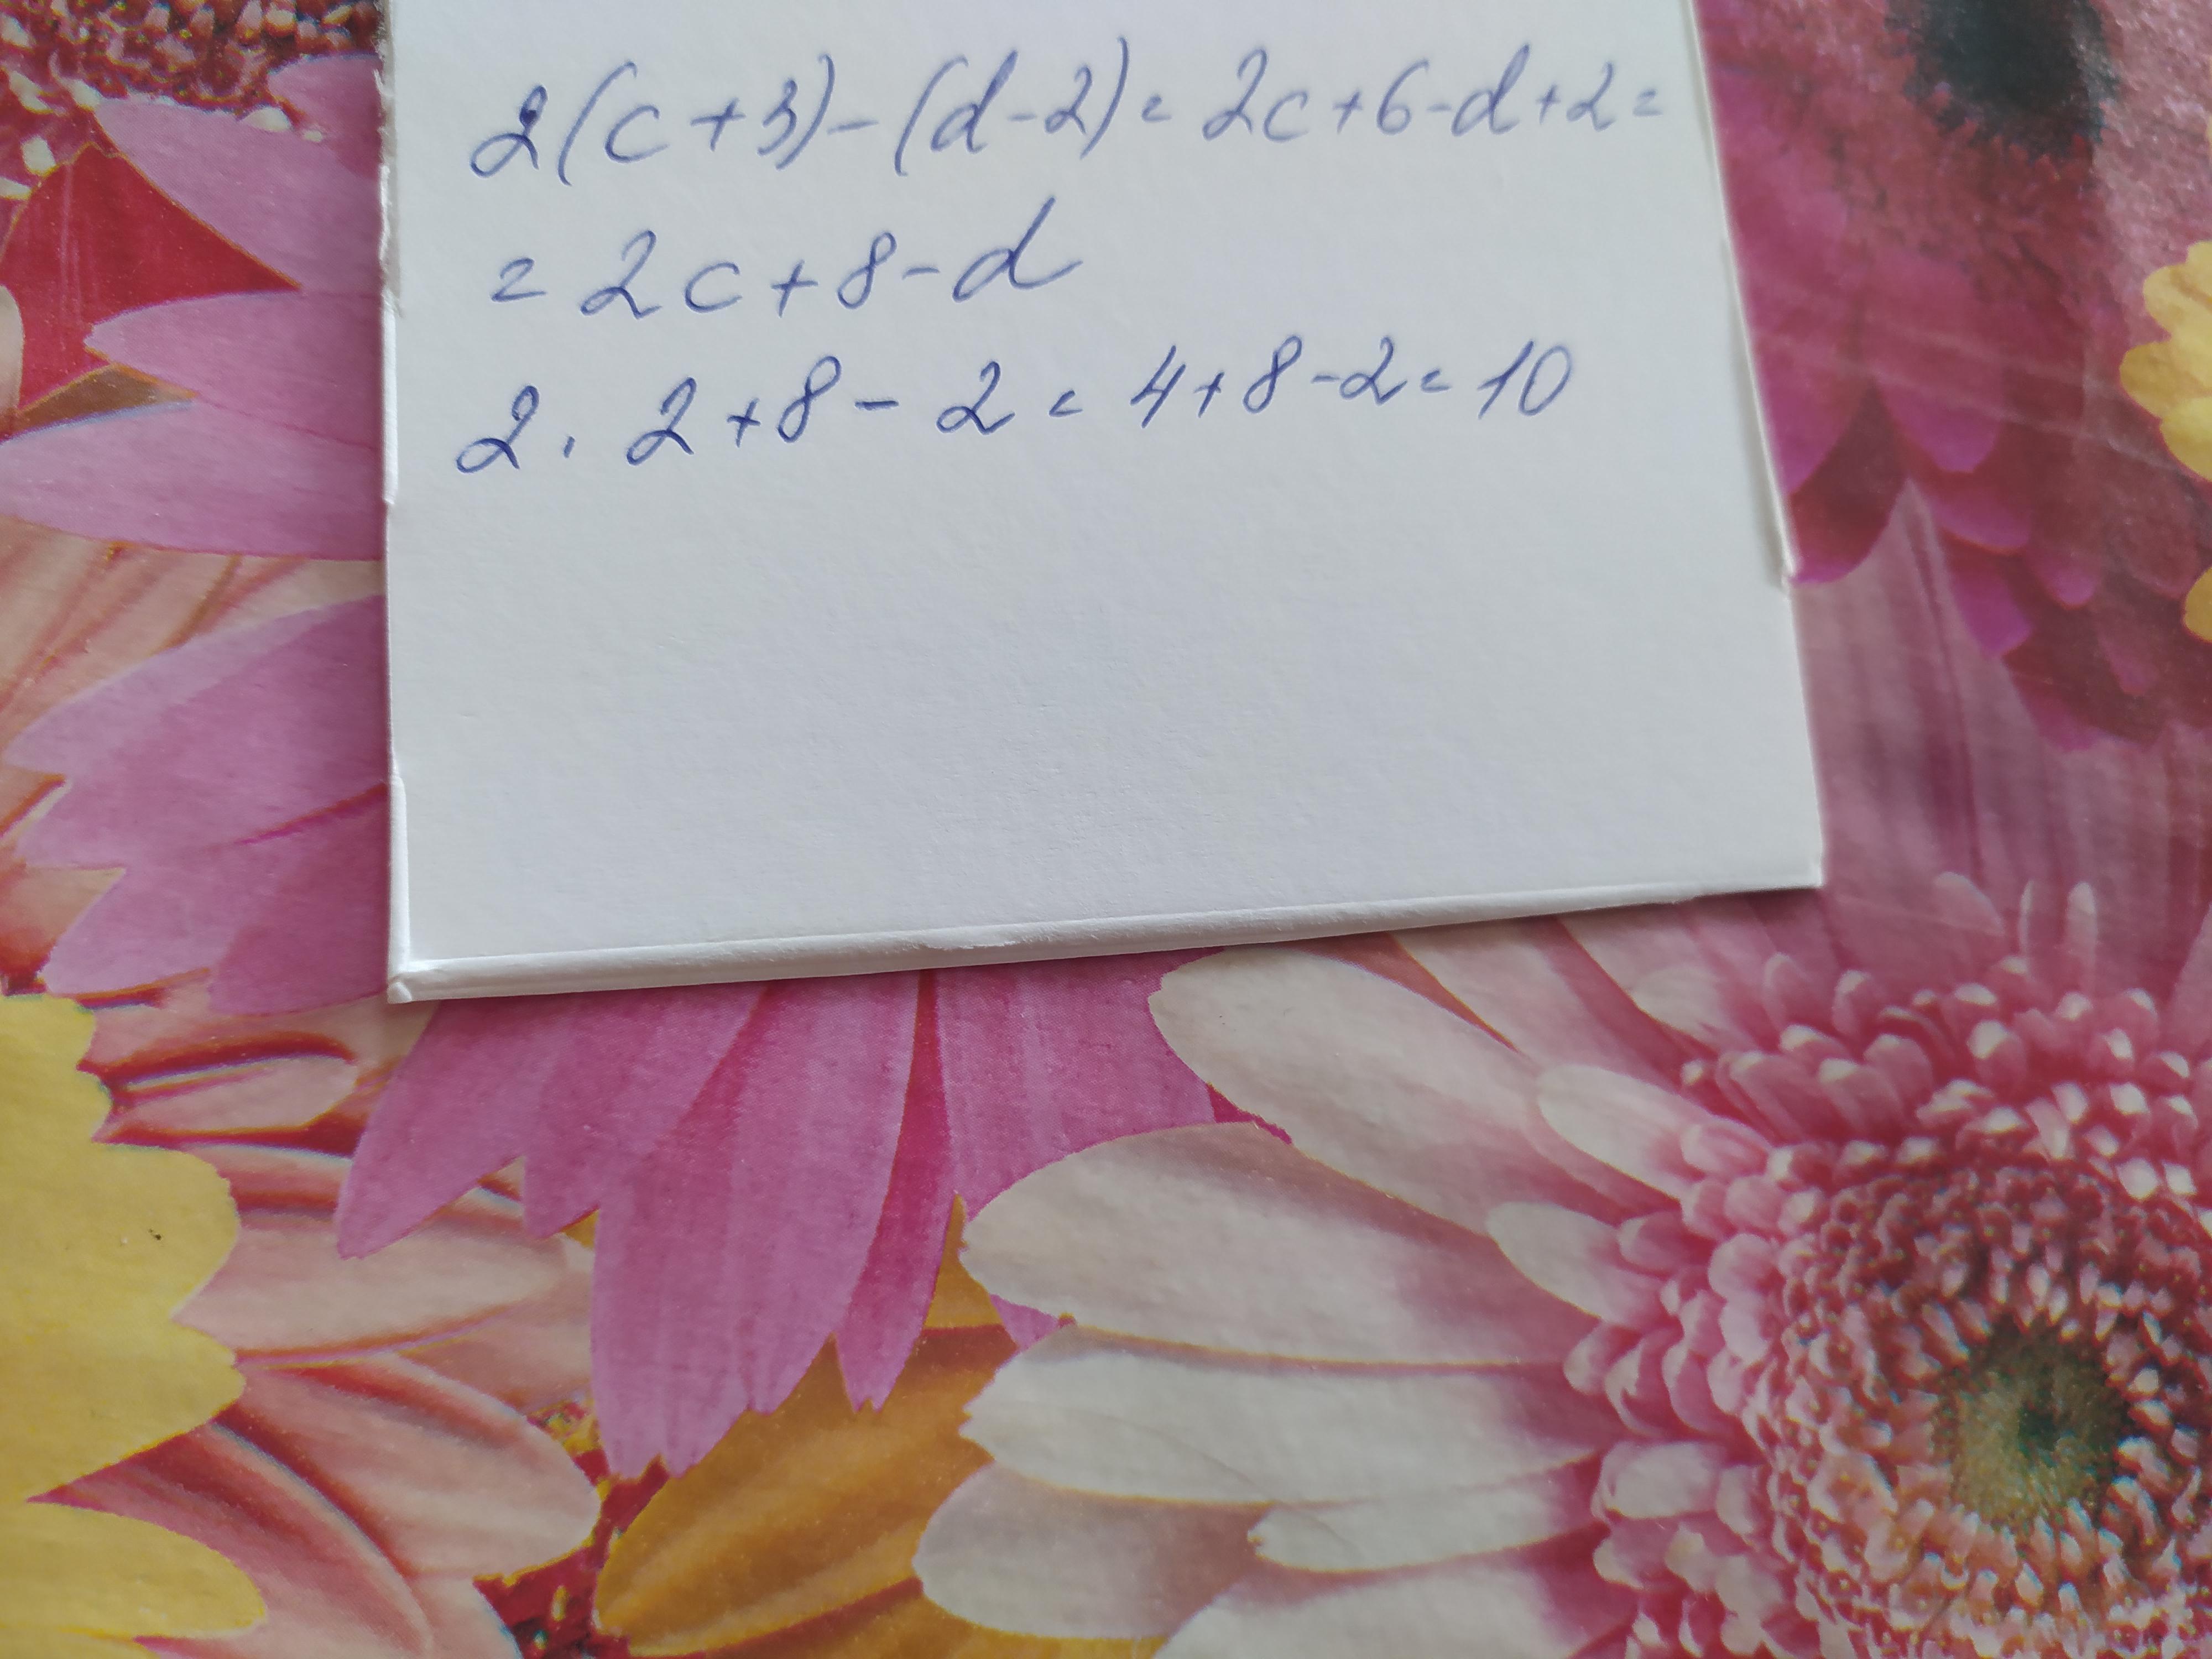 2(c+3)-(d-2)=2c+6-d+2=
=2c+8-d
2·2+8-2=4+8-2=10